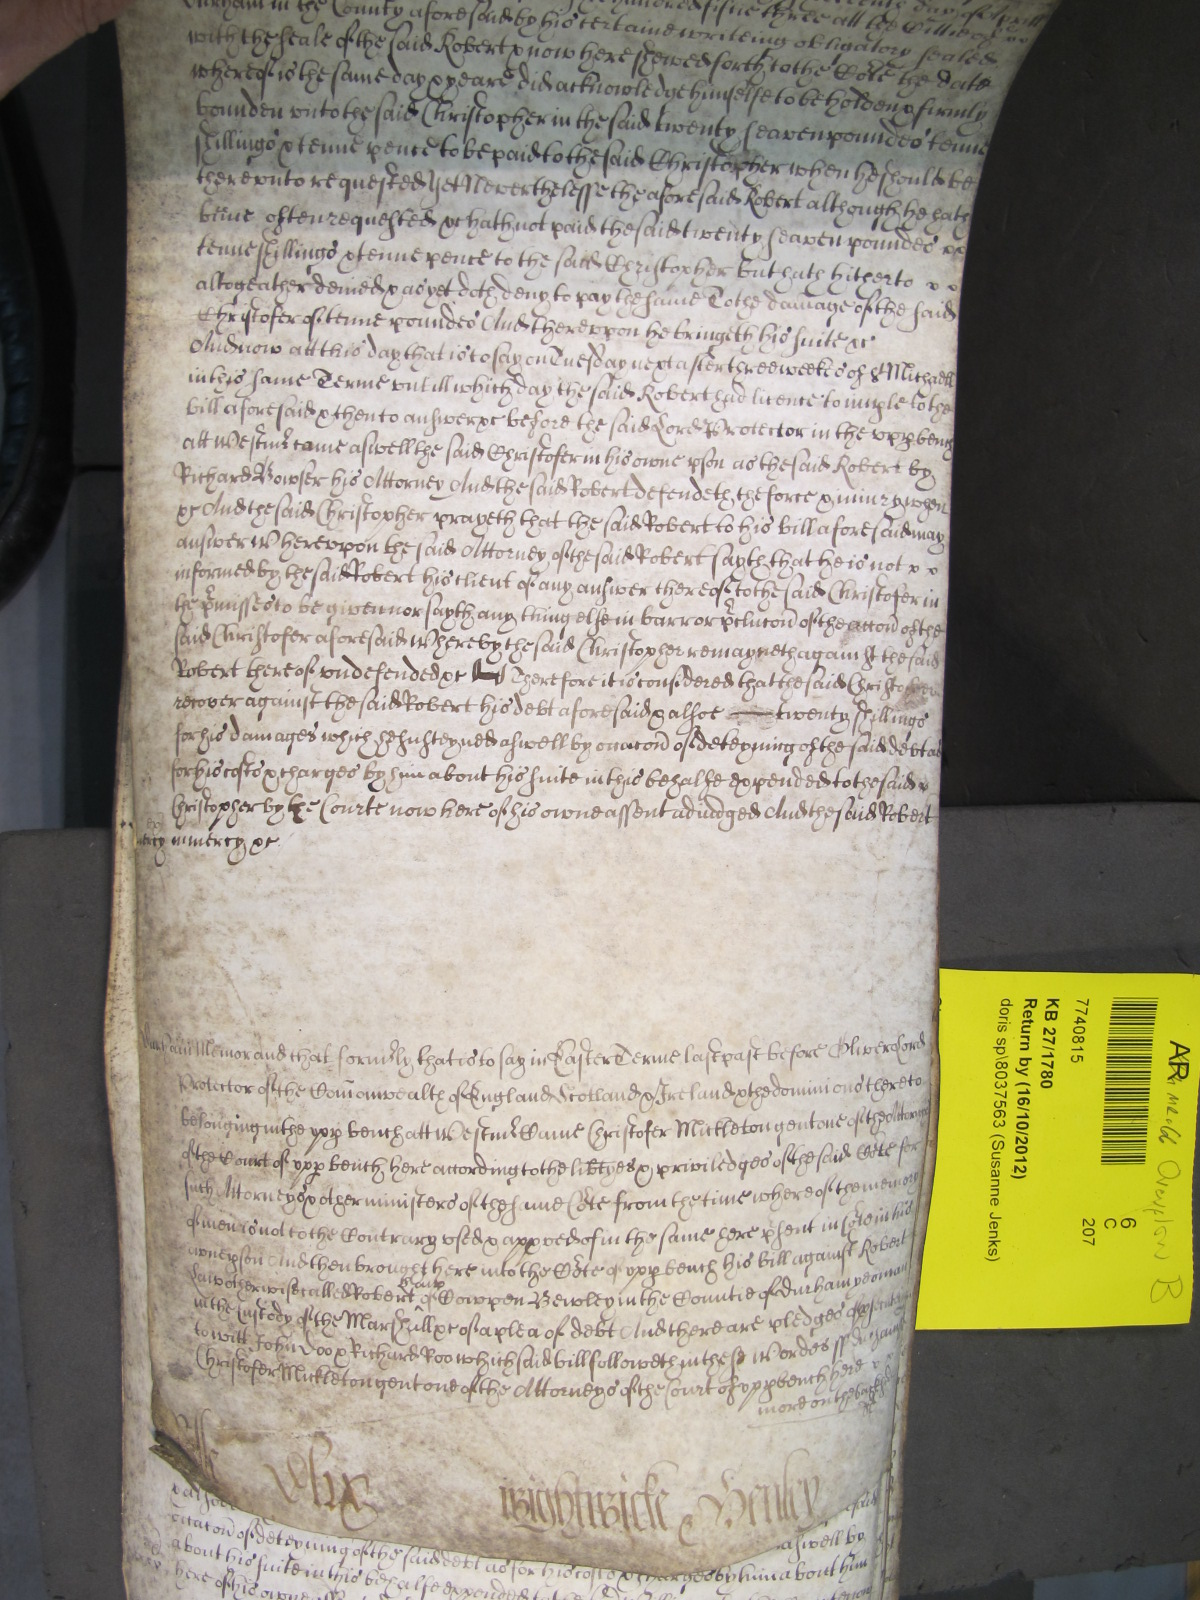 Durham in the County aforesaid by his certaine writeing obligatory sealed
with the seale of the said Robert & now here shewed forth to the Cōte the date
whereof is the same day & yeare did acknowledge himselfe to be holden & firmly
bounden unto the said Christopher in the said twenty seaven poundes tenne
shillings & tenne pence to be paid to the said Christopher when he should be
thereunto requested Yet Neverthelesse the aforesaid Robert although he hath
bine often requested &c hath not paid the said twenty seaven poundes x x
tenne shillings & tenne pence to the said Christopher but hath hitherto x x
altogeather denied & as yet doth deny to pay the same To the damage of the said
Christofer of tenne poundes And thereuppon he bringeth his suite &c
And now att this day that is to say on Tuesday next after three weekes of St Michaell
in this same Terme untill which day the said Robert had licence to imple to the
bill aforesaid & then to answer &c before the said Lord Protector in the upp bench
att Westmr came aswell the said Christofer in his owne pson as the said Robert by
Richard Bowser his Attorney And the said Robert defendeth the force & iniury when
&c And the said Christopher prayeth that the said Robert to his bill aforesaid may
answer Whereuppon the said Attorney of the said Robert sayth that he is not x x
informed by the said Robert his client of any answer thereof to the said Christofer in
the pmisses to be given nor sayth any thing else in barr or pclucon of the accon of the
said Christofer aforesaid Whereby the said Christopher remayneth against the said
Robert thereof undefended &c Therefore it is considered that the said Christofer
recover against the said Robert his debt aforesaid & alsoe twenty shillings
for his damages which he susteyned aswell by occacon of deteyning of the said debt as
for his costs & charges by him about his suite in this behalfe expended to the said x
Christopher by the Courte now here of his owne assent adiudged And the said Robert
in mercy &c
mercy
Durham Memorand that formly that is to say in Easter Terme last past before Oliver Lord
Protector of the Comonwealth of England Scotland & Ireland & the dominions thereto
belonging in the upp bench att Westmr Came Christofer Mickleton gent one of the Attorneys
of the Court of upp bench here according to the libtyes & priviledges of the said Cōte for
such Attorneys & other ministers of the same Cōte from the time whereof the memory
of men is not to the Contrary used & appved of in the same here psent in Cōte in his
owne pson And then brought here into the Cōte of upp bench his bill against Robert
Law otherwise called Robert Law of Cowpen Bewley in the Countie of Durham yeoman
in the custody of the Marshall &c of a plea of debt And there are pledges of psecuting
to witt John Doo & Richard Roo which said bill followeth in these Wordes ss Durham
Christofer Mickleton gent one of the Attorneys of the Court of upp bench here x x
more on the backside
Wightwicke & Henley
aswell by
deteyning of the said debt as for his costs & charges by him about him
about his suite in this behalfe expended to the
here of his owne
AR
Arnold Overton B
7740815
KB 27/1780
Return by (16/10/2012)
doris sp\8037563 (Susanne Jenks)
6
C
207